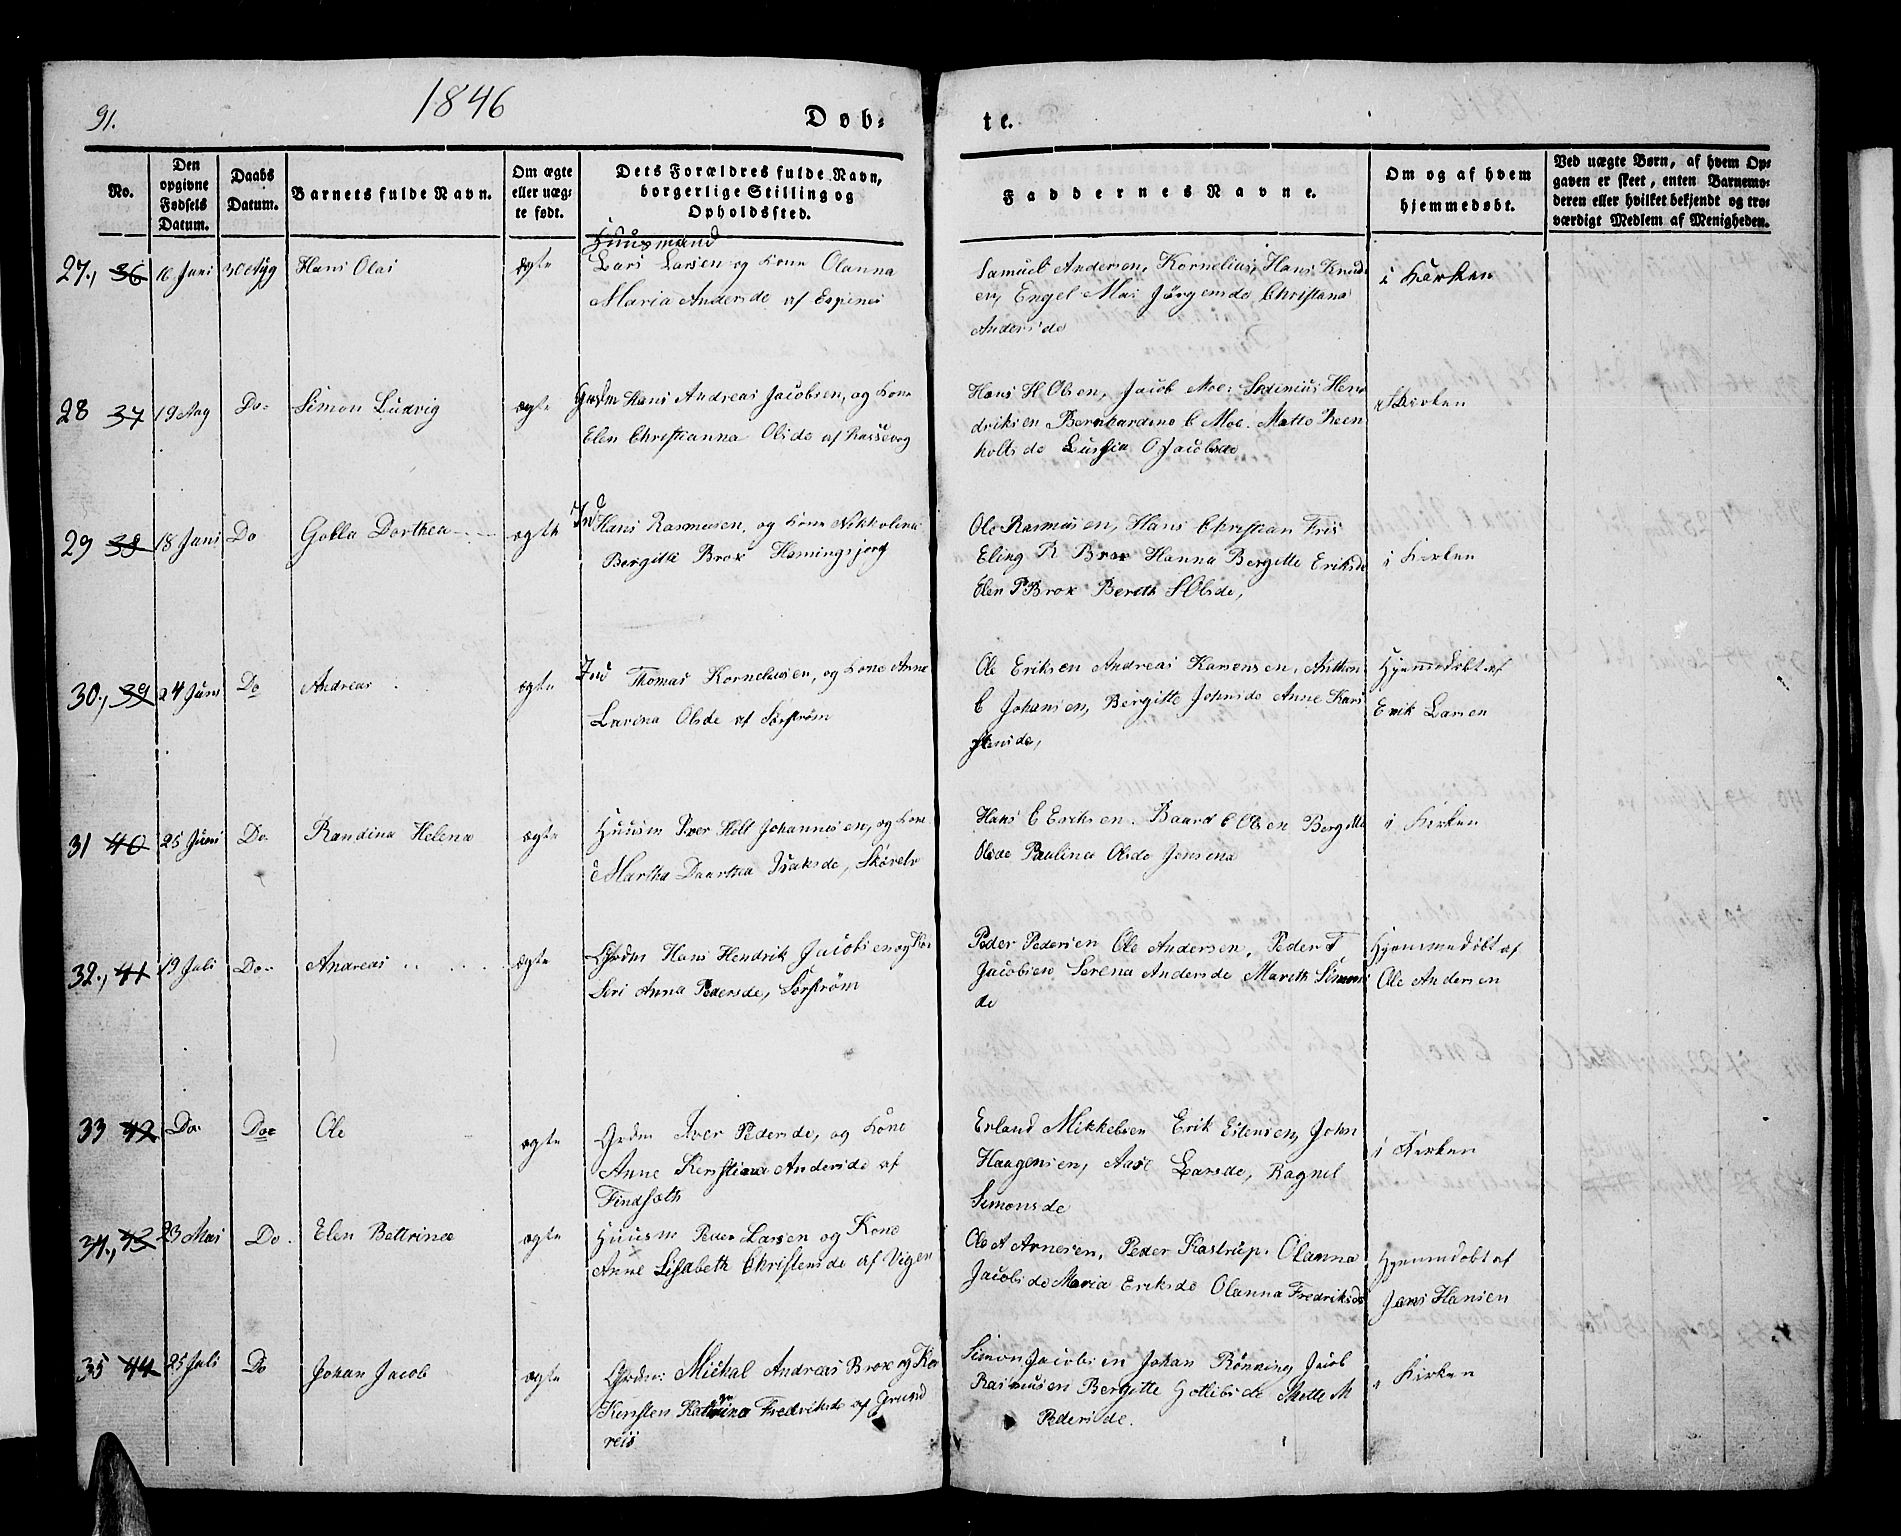 91.
1846
Døb-
te.
No.
Den opgivne Fødsels Datum.
Daabs Datum.
Barnets fulde Navn.
Om ægte eller uæg- te født.
Dets Forældres fulde Navn, borgerlige Stilling og Opholdssted.
Faddernes Navne.
Om og af hvem hjemmedøbt.
Ved uægte Børn, af hvem Op- gaven er skeet, enten Barnemo- deren eller hvilket bekjendt og tro- værdigt Medlem af Menigheden.
Huusmand
27., 36 16 Juni 30 Aug Hans Olai ægte Lars Larsen og Kone Olanna
Maria Andersde af Espenes
Samuel Andersen, Kornelius, Hans Knud
en, Engel Mar: Jørgensde Christana
Andersde
i Kirken
28 37 19 Aug Do- Simon Ludvig ægte Grdm Hans Andreas Jacobsen, og Kone
Elen Christianna Olsde af
Hans H Olsen, Jacob Moe: Hen
driksen Bernhardine C Moe. Mette Reen
holtsde O Jacobsde
i Kirken
29 38 18 Juni Do Golla Dorthea ægte Ind Hans Rasmusen, og Kone Nikkoline
Bergitte Brox
Ole Rasmusen, Hans Christian Fris
Eling R Brox Hanna Bergitte Eriksde
Elen P Brox Bereth S Olsde,
i Kirken
30., 39 24 Juni Do Andreas ægte Ind Thomas Korneliusen, og Kone Anne
Lavina Olsde af Sørstrøm
Ole Eriksen Andreas Karsensen, Anthon
C Johansen, Bergitte Johnsde Anne Kars
stensde,
Hjemmedøbt af
Erik Larsen
31 40 25 Juni Do- Randina Helena ægte Huusm Iver Holt Johannesen, og Kone
Martha Daarthea Isaksde, Skøvelv
Hans C Eriksen. Baard C Olsen Bergitte
Olsde Paulina Olsde Jensena
i Kirken
32., 41 19 Juli Do- Andreas ægte Grdm Hans Hendrik Jacobsen og Ko:
Siri Anna Pedersde, Sørstrøm
Peder Pedersen Ole Andersen, Peder F
Jacobsen Serena Andersde Mareth Simons
de
Hjemmedøbt af
Ole Andersen
33 42 Do- Do- Ole ægte Grdm Iver Pedersde, og Kone
Anne Kerstina Andersde af
Findsæth
Erland Mikkelsen Erik Estensen, John
Haagensen, Aase Larsde, Ragnel
Simonsde
i Kirken
34., 43 23 Mai Do. Elen Bettrine ægte Huusm Peder Larsen og Kone
Anne Lisabeth Christensde af Vigen
Ole A Arnesen, Peder Kastrup. Olanna
Jacobsde Maria Eriksde Olanna Fredriksde
Hjemmedøbt af
Jens Hansen
35 44 25 Juli Do Johan Jacob ægte Grdm: Michal Andreas Brox og Ko:
Kersten Katrina Fredriksde af Grund
reis
Simon Jacobsen Johan Rønning, Jacob
Rasmusen Bergitte Gotlibsde Mette M
Pedersde.
i Kirken